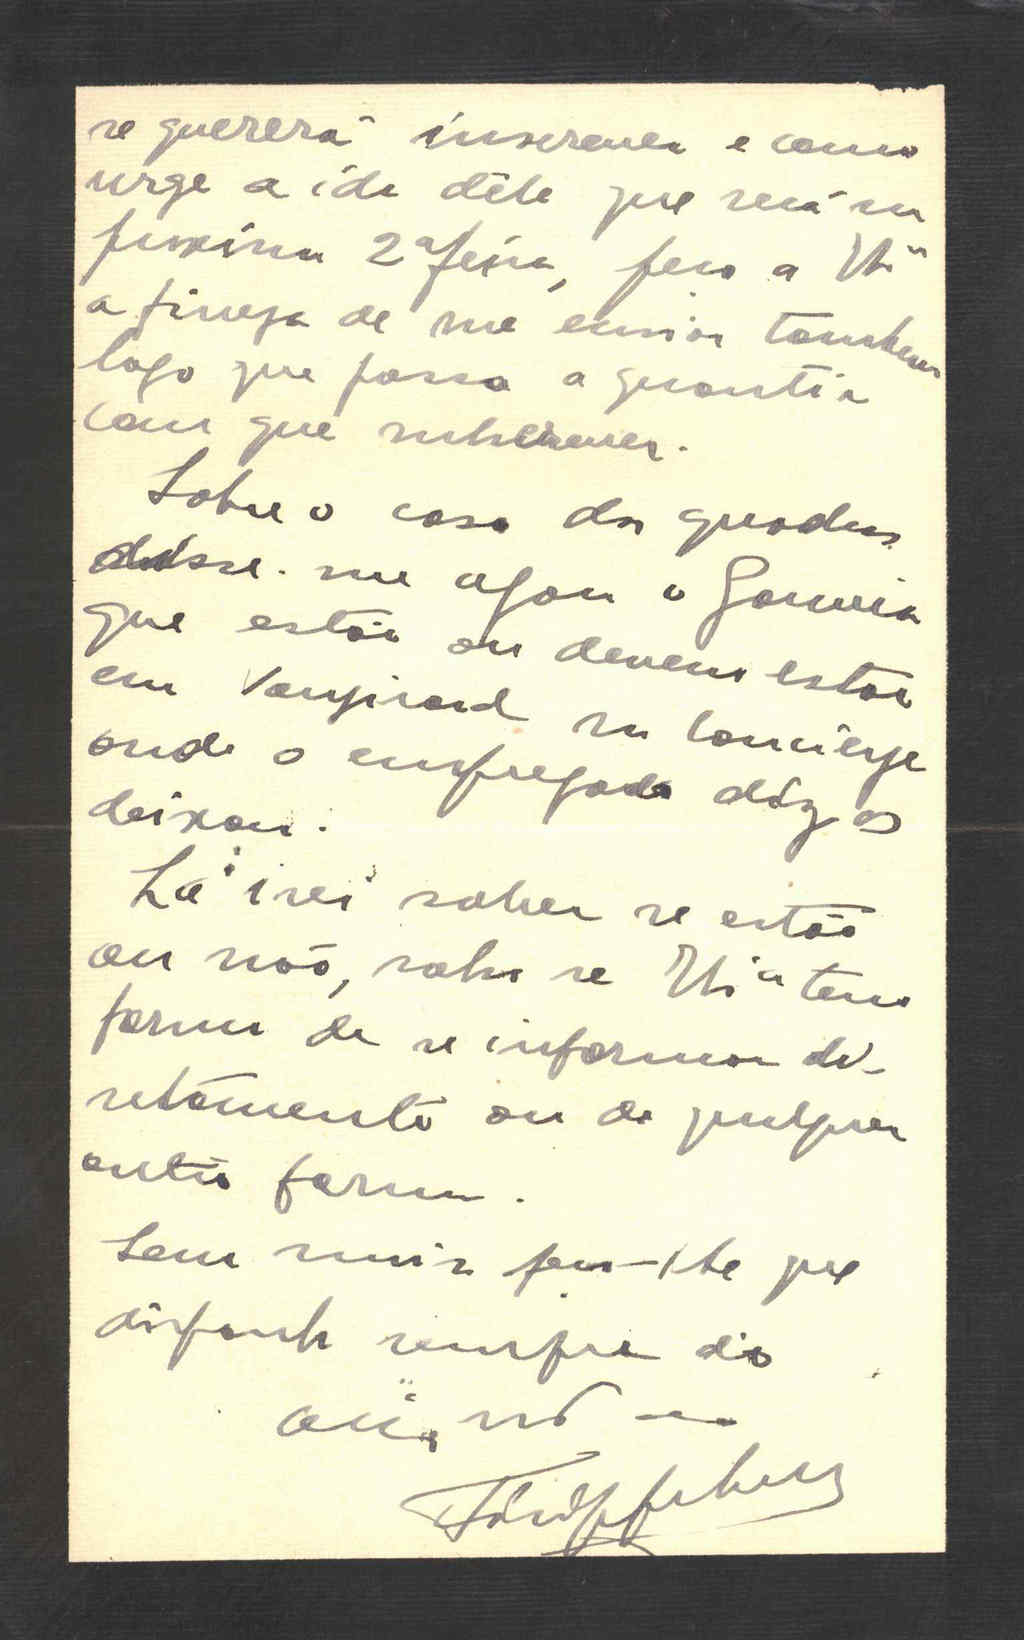 se quererá inscrever e como
urge a ida dêle que será na
proxima 2ª feira, peço a V.
a fineza de me enviar tambem
logo que possa a quantia
com que subscrever.
Sobre o caso dos quadros
disse-me agora o Gouveia
que estão ou devem estar
em Vaugirard na concierge
onde o empregado diz os
deixou.
Lá irei saber se estão
ou não, salvo se V. tem
forma de se informar di-
retamente ou de qualquer
outra forma.
Sem mais peço-lhe que
disponha sempre do